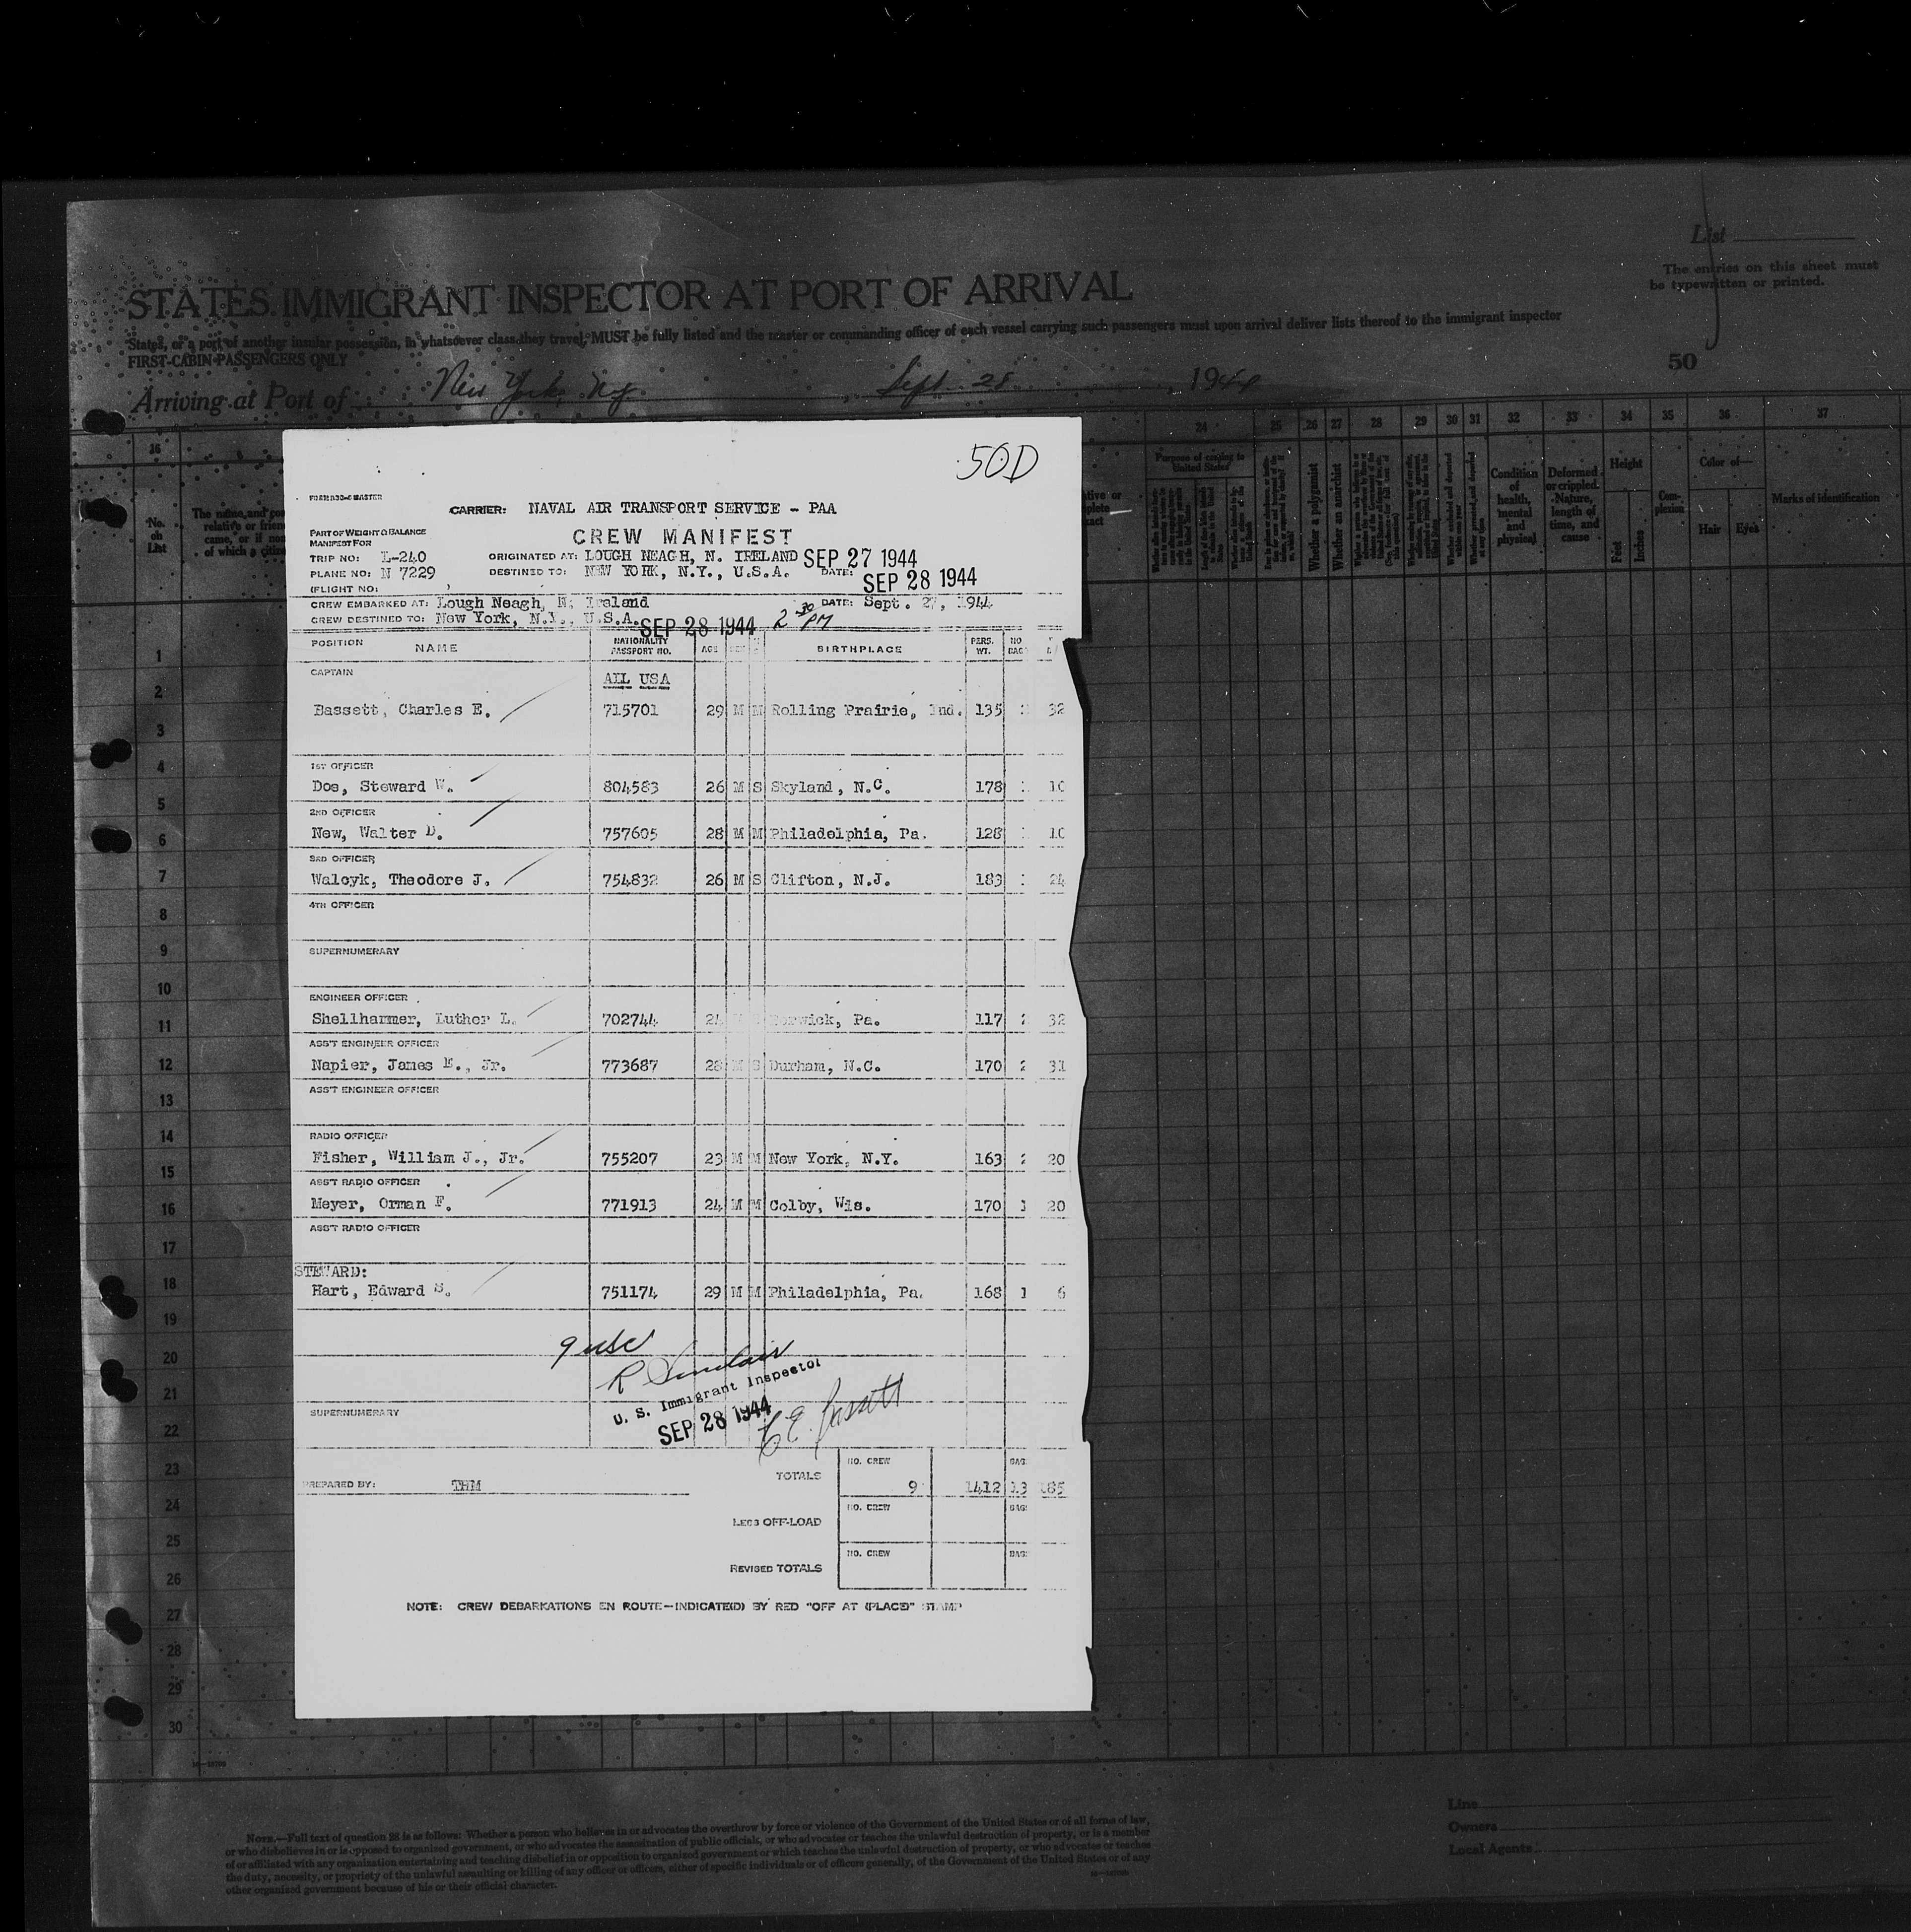 List
The entries on this sheet must
be typewritten or printed.
STATES IMMIGRANT INSPECTOR AT PORT OF ARRIVAL
States, or a port of another insular possession, in whatsoever class they travel, MUST be fully listed and the master or commanding officer of each vessel carrying such passengers must upon arrival deliver lists thereof to the immigrant inspector
FIRST-CABIN PASSENGERS ONLY
50
Arriving at Port of New York, N.Y., Sept. 28, 1944
24 25 26 27 28 29 30 31 32 33 34 35 36 37
Purpose of coming to United States
Whether a polygamist
Whether an anarchist
Condition of health, mental and physical
Deformed or crippled. Nature, length of time, and cause
Height
Feet
Inches
Complexion
Color of—
Hair
Eyes
Marks of identification
No. on List
50D
CARRIER: NAVAL AIR TRANSPORT SERVICE - PAA
PART OF WEIGHT & BALANCE
MANIFEST FOR
CREW MANIFEST
TRIP NO: L-240 ORIGINATED AT: LOUGH NEAGH, N. IRELAND SEP 27 1944
PLANE NO: N 7229 DESTINED TO: NEW YORK, N.Y., U.S.A. DATE: SEP 28 1944
(FLIGHT NO:
CREW EMBARKED AT: Lough Neagh, N. Ireland DATE: Sept. 27, 1944
CREW DESTINED TO: New York, N.Y., U.S.A. SEP 28 1944 2 30 PM
POSITION NAME NATIONALITY PASSPORT NO. AGE BIRTHPLACE PERS. WT. NO BAG
CAPTAIN ALL USA
Bassett, Charles E. 715701 29 M M Rolling Prairie, Ind. 135 32
1ST OFFICER
Doe, Steward W. 804583 26 M S Skyland, N.C. 178 10
2ND OFFICER
New, Walter D. 757605 28 M M Philadelphia, Pa. 128 10
3RD OFFICER
Walcyk, Theodore J. 754832 26 M S Clifton, N.J. 183 24
4TH OFFICER
SUPERNUMERARY
ENGINEER OFFICER
Shellhammer, Luther L. 702744 24 Berwick, Pa. 117 2 32
ASS'T ENGINEER OFFICER
Napier, James E., Jr. 773687 28 M S Durham, N.C. 170 2 31
ASS'T ENGINEER OFFICER
RADIO OFFICER
Fisher, William J., Jr. 755207 23 M M New York, N.Y. 163 2 20
ASS'T RADIO OFFICER
Meyer, Orman F. 771913 24 M M Colby, Wis. 170 1 20
ASS'T RADIO OFFICER
STEWARD:
Hart, Edward S. 751174 29 M M Philadelphia, Pa. 168 1 6
9 usc
R Sinclair
U. S. Immigrant Inspector
SEP 28 1944
C E Bassett
SUPERNUMERARY
TOTALS NO. CREW 9 1412 BAG. 13 185
PREPARED BY: THM
LEGS OFF-LOAD NO. CREW BAG.
REVISED TOTALS NO. CREW BAG.
NOTE: CREW DEBARKATIONS EN ROUTE—INDICATE(D) BY RED "OFF AT (PLACE)" STAMP
1
2
3
4
5
6
7
8
9
10
11
12
13
14
15
16
17
18
19
20
21
22
23
24
25
26
27
28
29
30
Line
Owners
Local Agents
NOTE.—Full text of question 28 is as follows: Whether a person who believes in or advocates the overthrow by force or violence of the Government of the United States or of all forms of law,
or who disbelieves in or is opposed to organized government, or who advocates the assassination of public officials, or who advocates or teaches the unlawful destruction of property, or is a member
of or affiliated with any organization entertaining and teaching disbelief in or opposition to organized government or which teaches the unlawful destruction of property, or who advocates or teaches
the duty, necessity, or propriety of the unlawful assaulting or killing of any officer or officers, either of specific individuals or of officers generally, of the Government of the United States or of any
other organized government because of his or their official character.